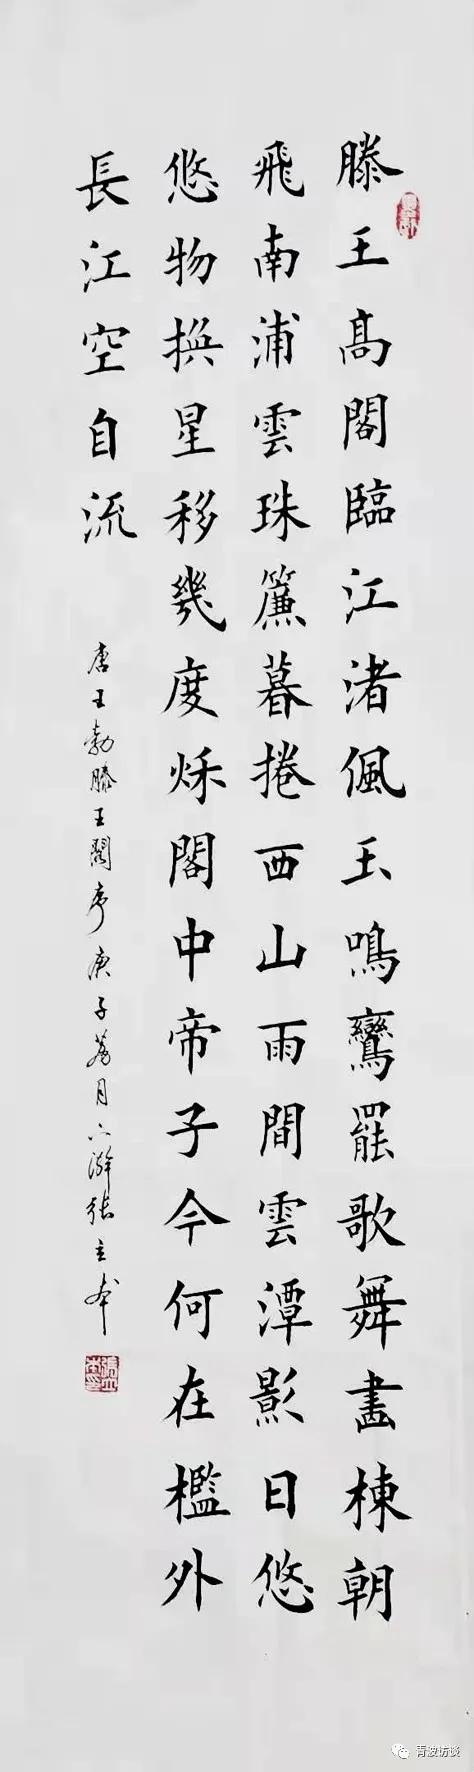 滕王髙閣臨江渚佩玉鳴鸞罷歌舞畫棟朝
飛南浦雲珠簾暮捲西山雨間雲潭影日悠
悠物換星移幾度秋閣中帝子今何在檻外
長江空自流
唐王勃滕王閣序庚子荔月張立本
青波访谈